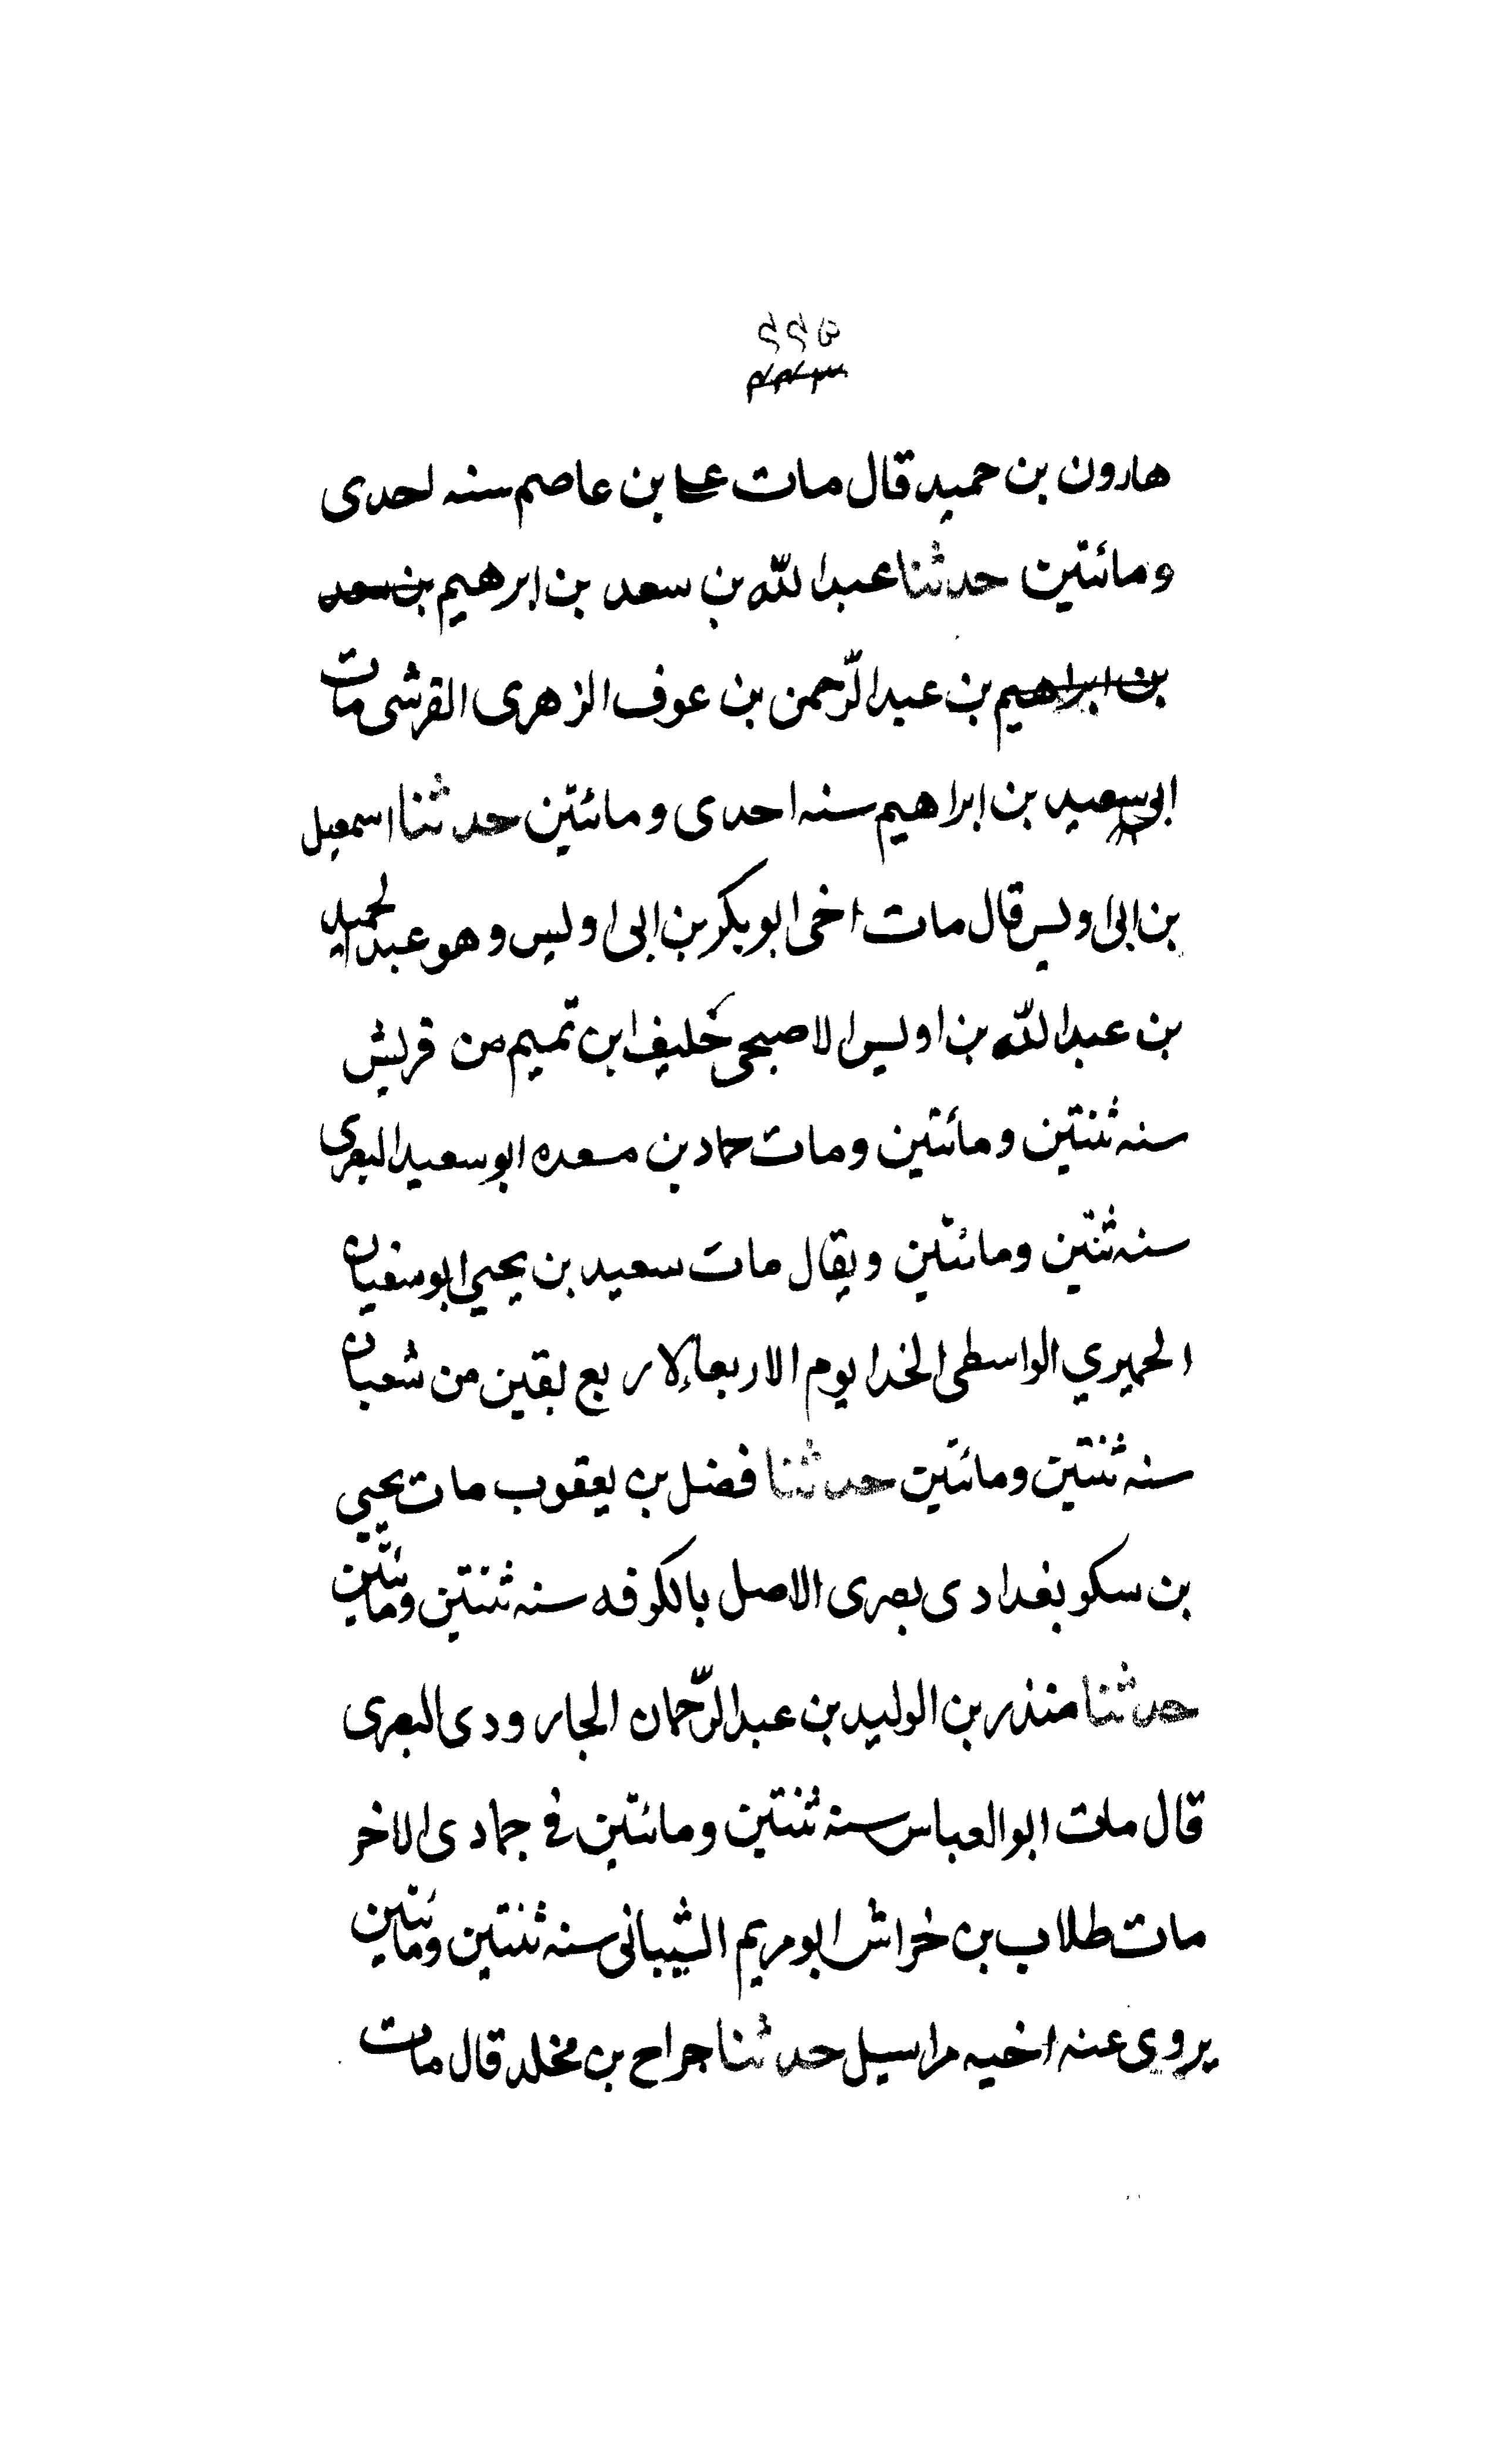 ٢٢٥
هارون بن حميد قال مات على بن عاصم سنه احدى
ومائتين حدثنا عبد الله بن سعد بن ابرهيم بن سعد
بن ابراهيم بن عبد الرّحمن بن عوف الزهرى القرشى مات
ابى سعيد بن ابراهيم سنه احدى ومائتين حدثنا اسمعيل
بن ابى اويس قال مات اخى ابو بكر بن ابى اويس وهو عبد الحميد
بن عبد الله بن اويس الاصبحى خليف ابن تميم من قريش
سنه ثنتين ومائتين ومات حماد بن مسعده ابو سعيد البصرى
سنه ثنتين ومائتين ويقال مات سعيد بن يحيي ابو سفيان
الحميري الواسطى الخدا يوم الاربعاء لاربع بقين من شعبان
سنه ثنتين ومائتين حدثنا فضل بن يعقوب مات يحيي
بن سكو بغدادى بصرى الاصل بالكوفه سنه ثنتين ومائتين
حدثنا منذر بن الوليد بن عبد الرّحمان الجارودى البصرى
قال مات ابو العباس سنه ثنتين ومائتين في جمادى الاخر
مات طلاب بن خراش ابو مريم الشيبانى سنه ثنتين ومائتين
يروى عنه اخيه مراسيل حدثنا جراح بن مخلد قال مات